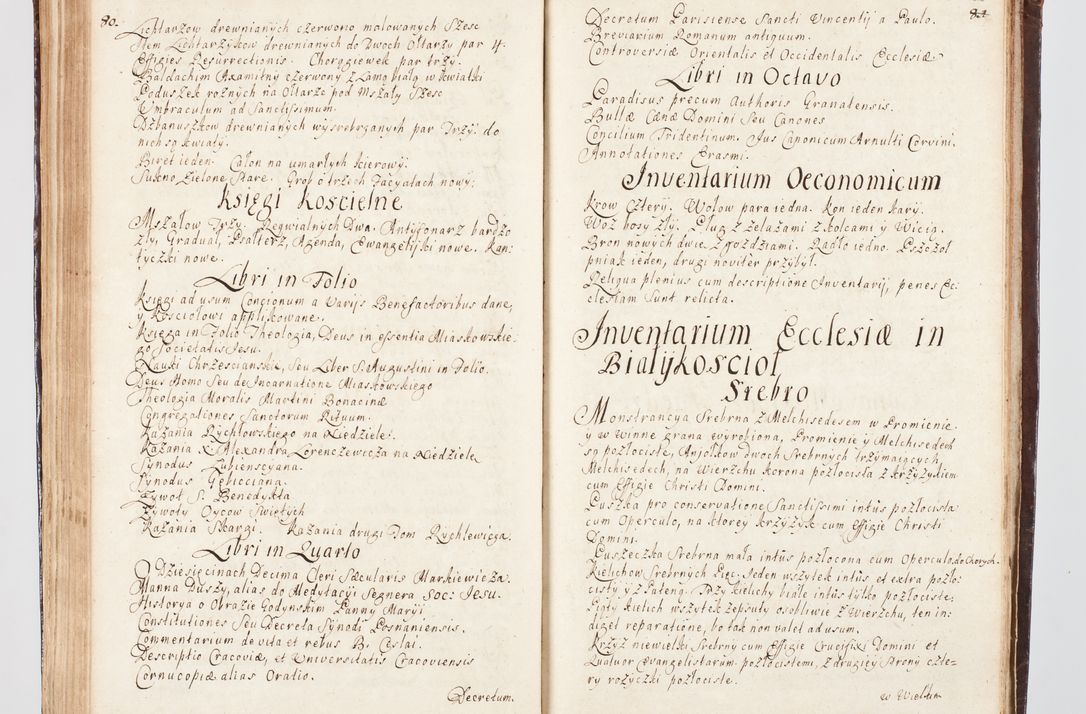 80.
Lichtarzow drewnianych czerwono malowanych Szesc
Item Lichtarzykow drewnianych do Dwoch Ołtarzy par 4.
Effigies Resurrectionis. Chorągiewek par trzy.
Baldachim Axamitny czerwony z Lamą białą w kwiatki
Poduszek roznych na Ołtarze pod Mszały Szesc
Umbraculum ad Sanctissimum.
Dzbanuszkow drewnianych wysrebrzanych par Trzy. do
nich są kwiaty.
Biret ieden. Całon na umarłych kierowy.
Sukno Zielone Stare. Grob o trzech Facyatach nowy.
Księgi Koscielne
Mszałow Trzy. Reqwialnych Dwa. Antyfonarz bardzo
zły, Gradual, Psałterz, Agenda, Ewangelyiki nowe. Kan-
tyczki nowe.
Libri in Folio
Księgi ad usum Concionum a Varijs Benefactoribus dane,
y Kosciołowi applikowane.
Księga in Folio Theologia, Deus in essentia Miaskowskie-
go Societatis Jesu.
Nauki Chrzescianskie, Seu Liber S. Augustini in Folio.
Deus Homo Seu de Incarnatione Miaskowskiego
Theologia Moralis Martini Bonacinæ
Congregationes Sanctorum Rituum.
Kazania Rychłowskiego na Niedziele.
Kazania X. Alexandra Lorenczewicza na Niedziele
Synodus Lubienscyana.
Synodus Gębicciana.
Zywoł S. Benedykta
Zywoty Oycow Swiętych
Kazania Skargi. Kazania drugi Tom Rychlewicza.
Libri in Quarto
O Dziesięcinach Decima Cleri Sæcularis Markiewicza.
Manna Duszy, alias do Medytacyi Segnera Soc: Jesu.
Historya o Obrazie Godynskim Panny Maryi
Constitutiones Seu Decreta Synodi Posnaniensis.
Commentarium de vita et rebus B. Ceslai.
Descriptio Cracoviæ, et Universitatis Cracoviensis
Cornucopiæ alias Oratio.
Decretum.
81
Decretum Parisiense Sancti Vincentij a Paulo.
Breviarium Romanum antiquum.
Controversiæ Orientalis et Occidentalis Ecclesiæ
Libri in Octavo
Paradisus precum Authoris Granatensis.
Bullæ Cænæ Domini Seu Canones
Concilium Tridentinum. Jus Canonicum Arnulti Corvini.
Annotationes Erasmi.
Inventarium Oeconomicum
Krow Cztery. Wołow para iedna. Kon ieden kary.
Woz bosy zły. Pług z zelazami z kolcami y Wicią.
Bron nowych dwie z gozdziami. Radło iedno. Pszczoł
pniak ieden, drugi noviter przybył.
Reliqua plenius cum descriptione Inventarij, penes Ec-
clesiam Sunt relicta.
Inventarium Ecclesiæ in
Białykoscioł
Srebro
Monstrancya Srebrna z Melchisedesem w Promienie
y w Winne grana wyrobiona, Promienie y Melchisedech
są pozłociste, Anjołkow dwoch Srebrnych trzymaiących
Melchisedech, na Wierzchu Korona pozłocista z krzyzykiem
cum Effigie Christi Domini.
Puszka pro conservatione Sanctissimi intus pozłocista
cum Operculo, na ktorey krzyzyk cum Effigie Christi
Domini.
Puszeczka Srebrna mała intus pozłocona cum Operculo, do Chorych.
Kielichow Srebrnych Pięć. Jeden wszytek intus, et extra pozło-
cisty y z Pateną. Trzy kielichy białe intus tylko pozłociste;
Piąty kielich wszytek zepsuty osobliwie z Wierzchu, ten in-
diget reparatione, bo tak non valet ad usum.
Krzyz niewielki Srebrny cum Effigie Crucifixi Domini et
Quatuor Evangelistarum pozłocistemi, z drugiey Strony czte-
ry rozyczki pozłociste.
w Wielkim